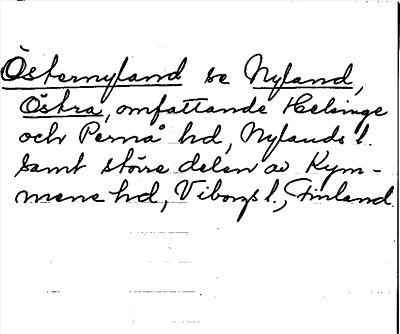 Östernyland se Nyland,
Östra, omfattande Helsinge
och Pernå hd, Nylands l.
samt större delen av Kym-
mene hd, Viborgs l., Finland.